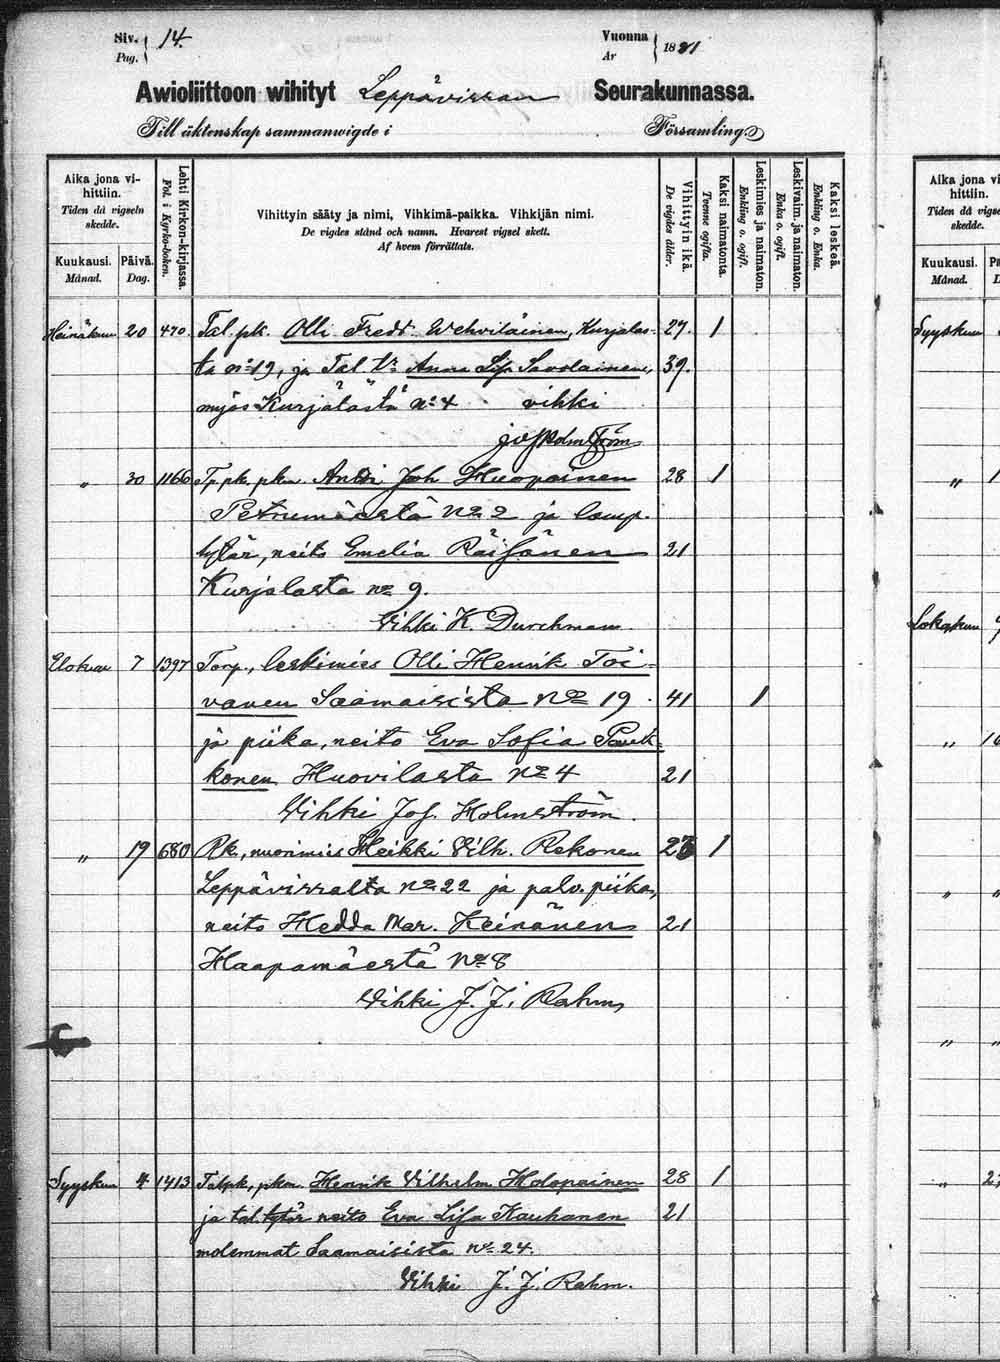 Siv. 14.
Pag.
Vuonna 1881
År
Awioliittoon wihityt Leppävirran Seurakunnassa.
Till äktenskap sammanwigde i Församling
Aika jona vihittiin.
Tiden då vigseln skedde.
Kuukausi.
Månad.
Päivä.
Dag.
Lehti Kirkon-kirjassa.
Fol. i Kyrko-boken.
Vihittyin sääty ja nimi, Vihkimä-paikka. Vihkijän nimi.
De vigdes stånd och namn. Hvarest vigsel skett.
Af hvem förrättats.
Vihittyin ikä.
De vigdes ålder.
Kaksi naimatonta.
Tvenne ogifta.
Leskimies ja naimaton.
Enkling o. ogift.
Leskivaim. ja naimaton.
Enka o. ogift.
Kaksi leskeä.
Enkling o. Enka.
Heinäkuu 20 470. Tal. pk. Olli Fredr. Wehviläinen, Kurjalas- 27. 1
ta no 19, ja Tal. tr Anna Lis. Savolainen, 39.
myös Kurjalasta no 4 vihki
Jos Holmström
„ 30 1166 Tp. pk, pkn. Antti Joh Huopainen 28 1
Petrumäestä No 2 ja lamp.
tytär, neito Emelia Räisänen 21
Kurjalasta no 9.
Vihki K. Durchman
Elokuu 7 1397 Torp., leskimies Olli Henrik Toi-
vanen Saamaisista No 19. 41 1
ja piika, neito Eva Sofia
konen Huovilasta No 4 21
Vihki Jos. Holmström.
„ 19 680 Rk., nuorimies Heikki Vilh. Rekonen 1
Leppävirralta No 22 ja palv. piika,
neito Hedda Mar. Keinänen 21
Haapamäestä No 8
Vihki J. J. Rahm,
Syyskuu 4 1413 Tal.pk, pkn. Henrik Vilhelm Holopainen 28 1
ja tal. tytär neito Eva Lisa Kauhanen 21
molemmat Saamaisista No 24.
Vihki J. J. Rahm.
Aika jona vi
hittiin.
Tiden då vigse
skedde.
Kuukausi.
Månad.
Syyskuu
„ 1
Lokakuu
„ 1
„ „
„ „
„ 2